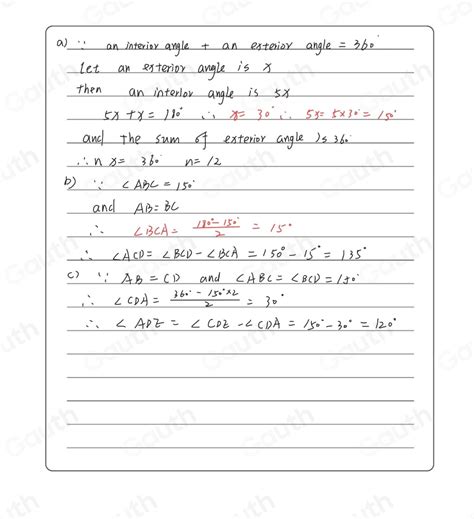 a) ∵ an interior angle + an exterior angle = 360°
let an exterior angle is x
then an interior angle is 5x
5x + x = 180° ∴ x = 30° ∴ 5x = 5×30° = 150°
and the sum of exterior angle is 360
∴ n x = 360° n = 12
b) ∵ ∠ABC = 150°
and AB = BC
∴ ∠BCA = (180° - 150°)/2 = 15°
∴ ∠ACD = ∠BCD - ∠BCA = 150° - 15° = 135°
c) ∵ AB = CD and ∠ABC = ∠BCD = 150°
∴ ∠CDA = (360° - 150°×2)/2 = 30°
∴ ∠ADE = ∠CDE - ∠CDA = 150° - 30° = 120°
Gauth